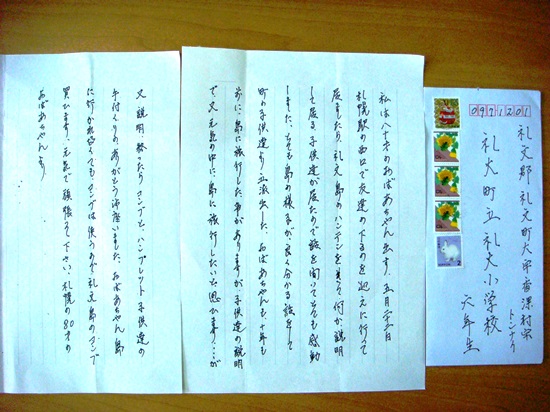 0971201
礼文郡礼文町大字香深村字
トンナイ
礼文町立礼文小学校
六年生
私は八十才のおばあちゃんです、五月二十二日
札幌駅の西口で友達の下るのを迎えに行って
居ましたら、礼文島のハンテンを着て何か説明
して居る子供達が居たので話を聞いてとても感動
しました、とても島の様子が良く分かる話をして
町の子供達より立派でした、おばあちゃんも十年も
前に島に旅行した事がありますが子供達の説明
で又元気の中に島に旅行したいと思ひます、…が
又説明終ったらコンブと、パンフレット子供達の
手付くりのありがとう御座いました、おばあちゃん
に何かお礼
コンブは使うので礼文島のコンブ
買ひます、元気で頑張って下さい、札幌の80才の
おばあちゃんより